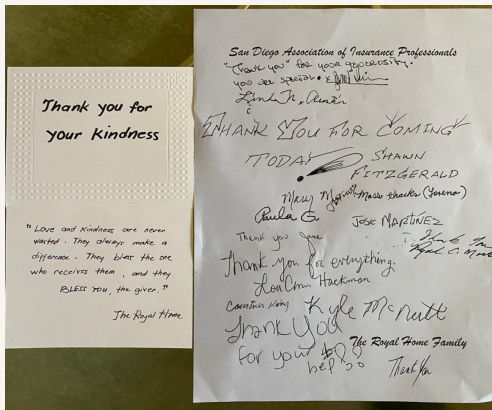 Thank you for
your kindness
"Love and kindness are never
wasted. They always make a
difference. They bless the one
who receives them, and they
BLESS YOU, the giver."
The Royal Home
San Diego Association of Insurance Professionals
"Thank you" for your generosity.
you are special.
THANK YOU FOR COMING
TODAY
SHAWN
FITZGERALD
Mary
thanks (Lorena)
Paula G.
JOSE MARTINEZ
Thank you
Thank you for everything.
Hackman
Kyle McNutt
Thank You
The Royal Home Family
for your
help
Thank You